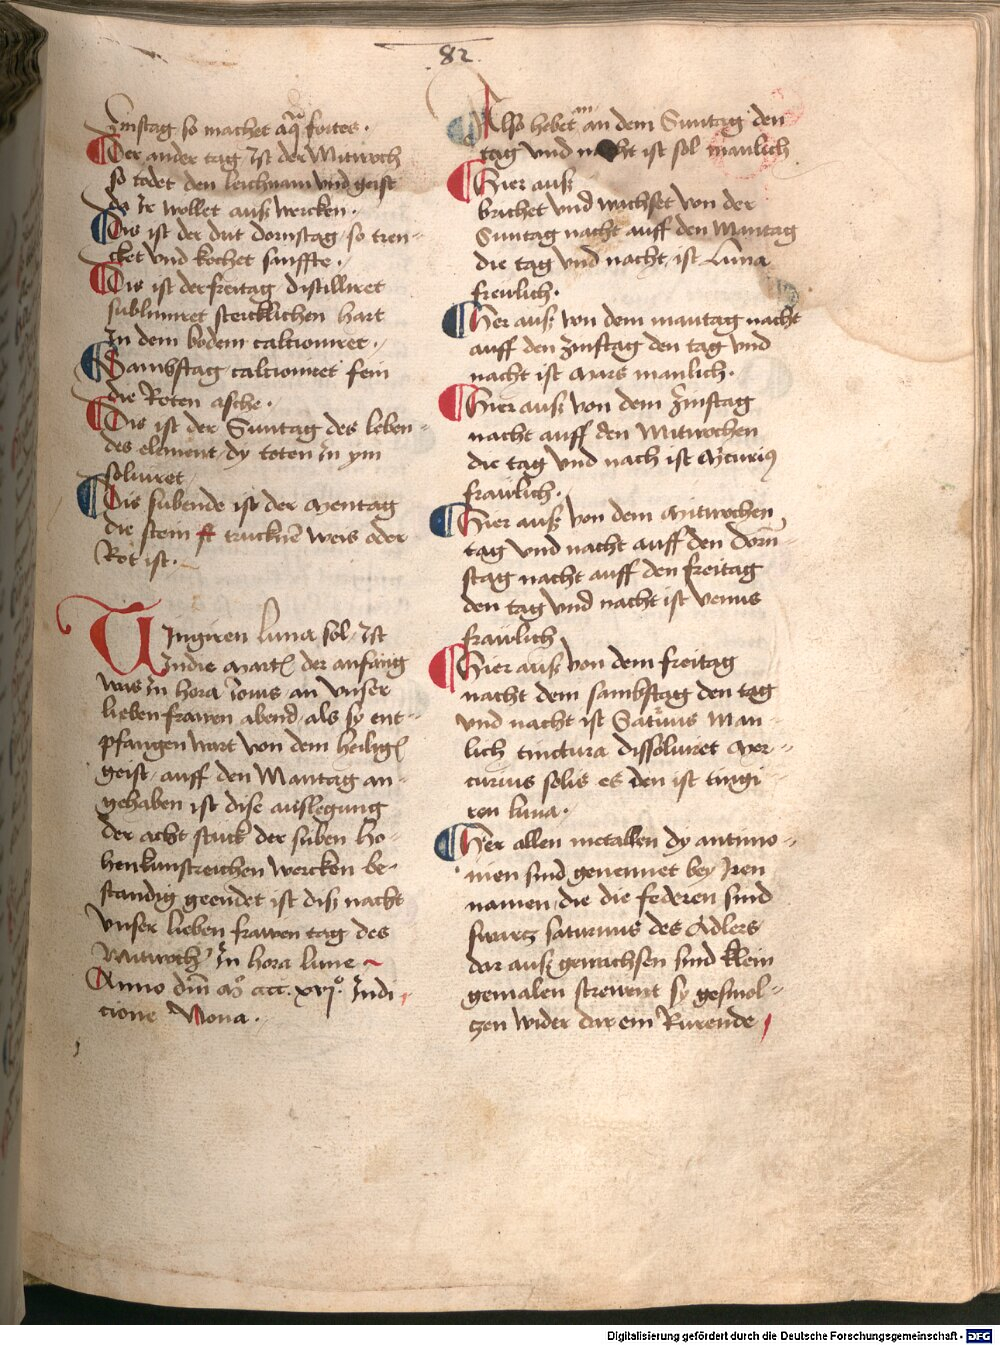 82
Zinstag so machet aqua fortes ·
Der ander tag Ist der Mitwoch
so todet den leichnam vnd geist
do Ir wollet auß wercken ·
Dis ist der drit dornstag so tren-
cket vnd kochet sanffte ·
Dis ist der freitag distilliret
sublimiret stercklichen hart
In dem bodem calcioniret ·
Sambstag calcioniret sein
die Roten asche ·
Dis ist der Suntag des leben-
des element dy toten In ym
soluiret
Dis subende ist der Mentag
die stein trucknē weis oder
Rot ist ·
Tingiren luna sol Ist
Indie der anfang
was In hora Iouis an vnser
lieben frawen abend als sy ent-
pfangen wart von dem heilig
geist auff den Mantag an-
gehaben ist dise auslegung
der acht stuck der suben ho-
henkunstreichen wercken be-
standig geendet ist diß nacht
vnser lieben frawen tag des
Mitwoch In hora lune
Anno dm̄ Mº cccc xvjº Indi
cione Nona ·
Also hebet an dem Suntag den
tag vnd nacht ist sol manlich
Hier auß
bruhet vnd wachset von der
Suntag nacht auff den Mantag
die tag vnd nacht ist Luna
freulich ·
Her auß von dem mantag nacht
auff den Zinstag den tag vnd
nacht ist Mars manlich ·
Hier auß von dem Zinstag
nacht auff den Mitwochen
die tag vnd nach ist Mercurius
fraulich ·
Hier auß von dem Mitwochen
tag vnd nacht auff den dorn-
stag nacht auff den freitag
den tag vnd nacht ist venus
fraulich
Hier auß von dem freitag
nacht dem sambstag den tag
vnd nacht ist Saturnus man-
lich tinctura dissoluiret Mer-
curius solis es den ist tingi
ren luna ·
Her allen metallen dy antimo-
nien sind genennet bey Iren
namen die die federen sind
swartz saturnus des Adlers
dar auß gewachsen sind klein
gemalen strewent sy gesmol-
tzen wider dar ein Rurende
Digitalisierung gefördert durch die Deutsche Forschungsgemeinschaft - DFG